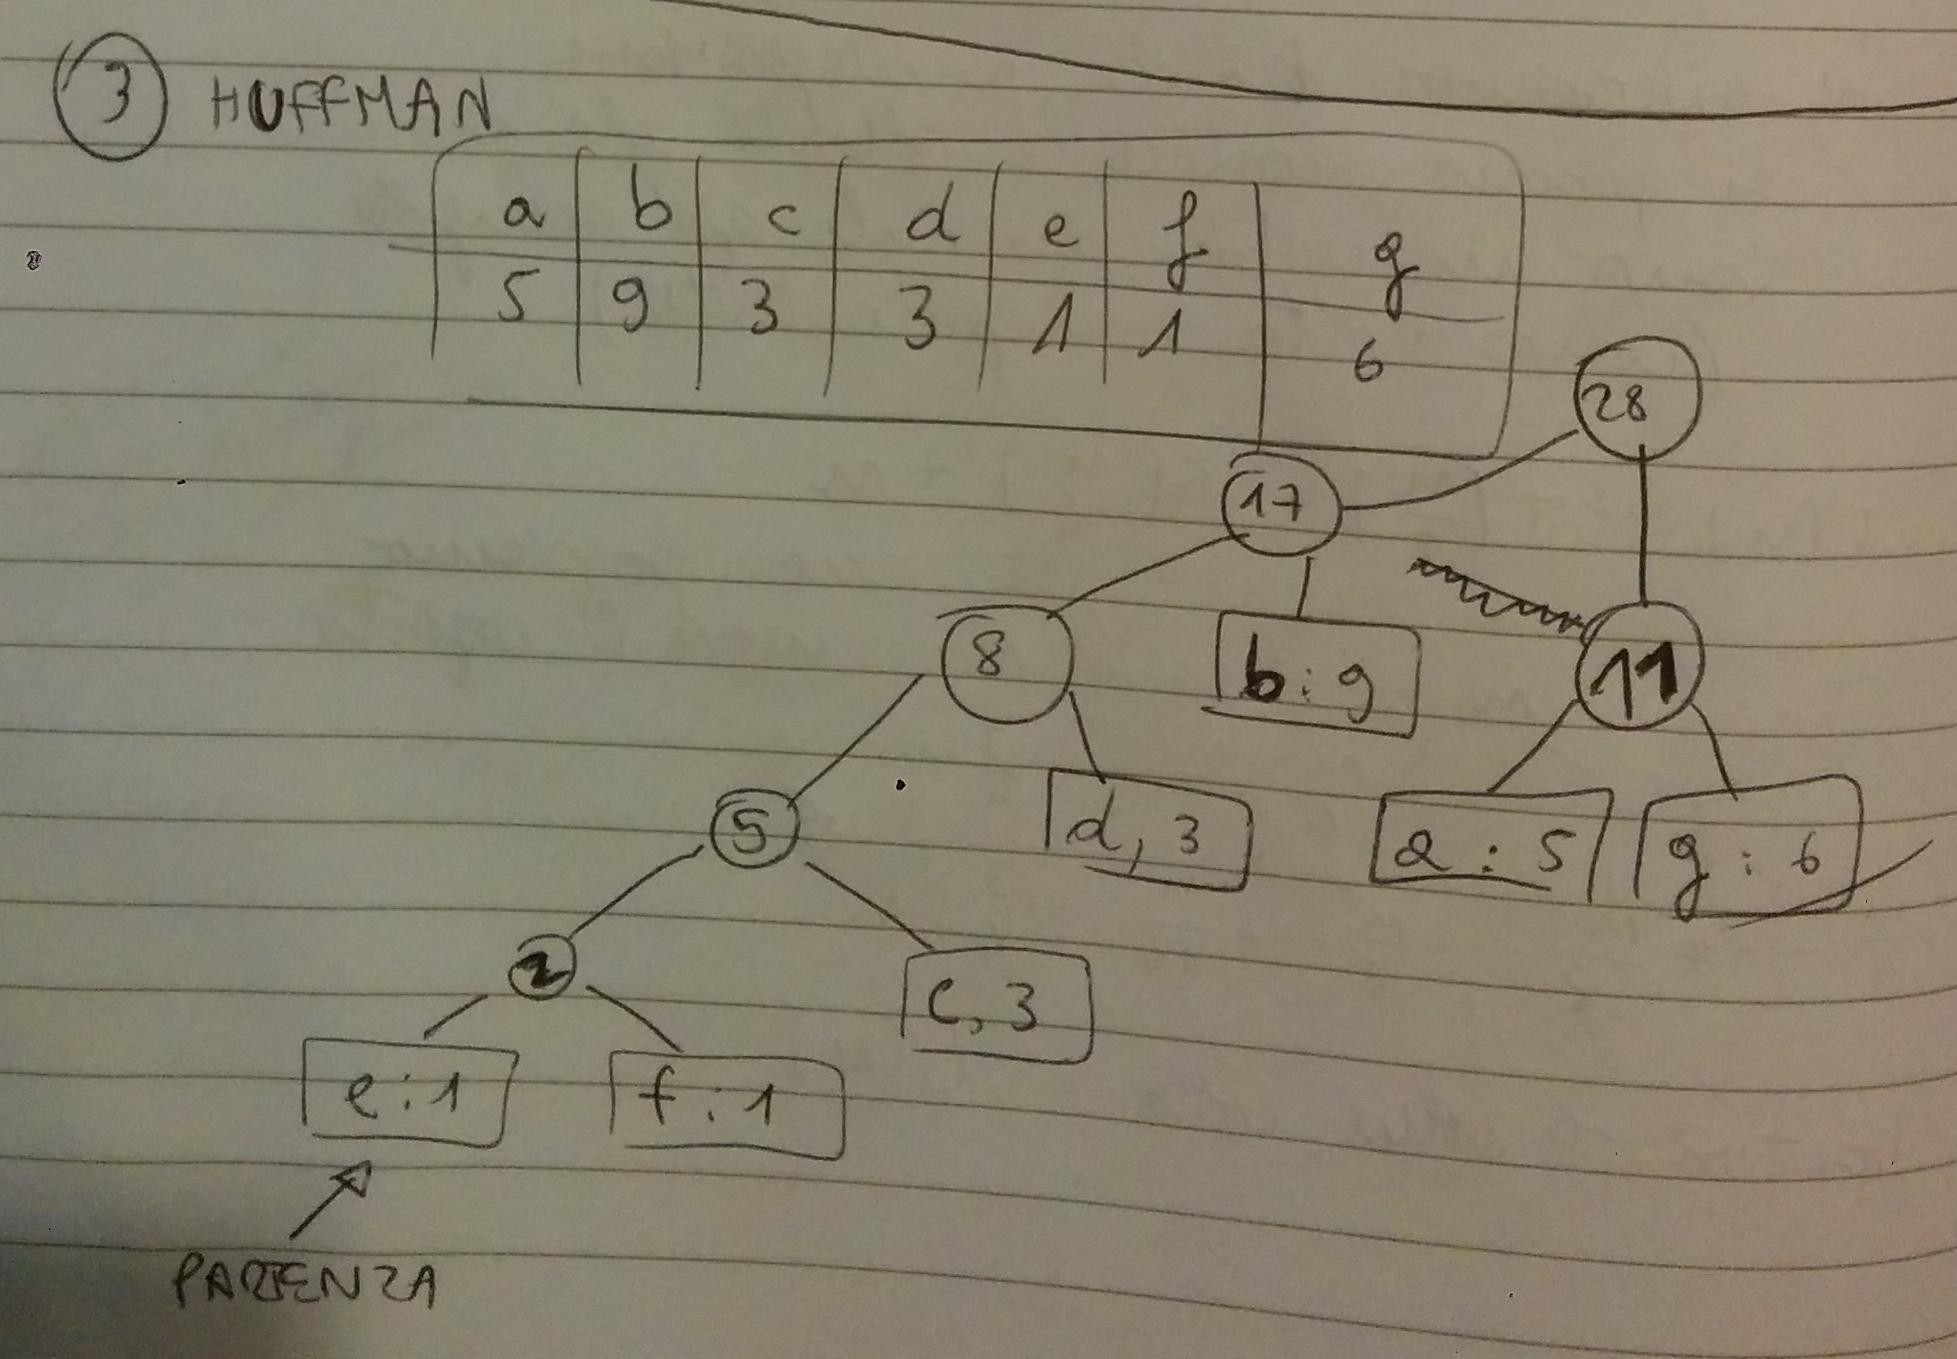 3 HUFFMAN
a b c d e f g
5 9 3 3 1 1 6
28
17
8 b:9 11
5 d,3 a:5 g:6
2 c,3
e:1 f:1
PARTENZA